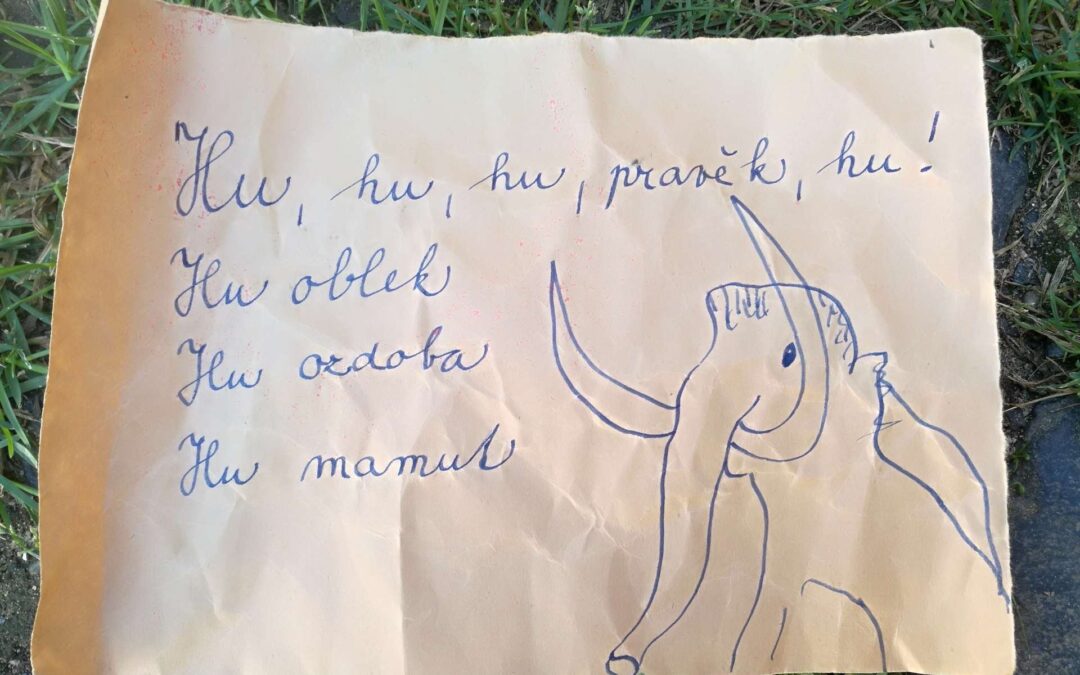 Hu, hu, hu, pravěk, hu!
Hu oblek
Hu ozdoba
Hu mamut